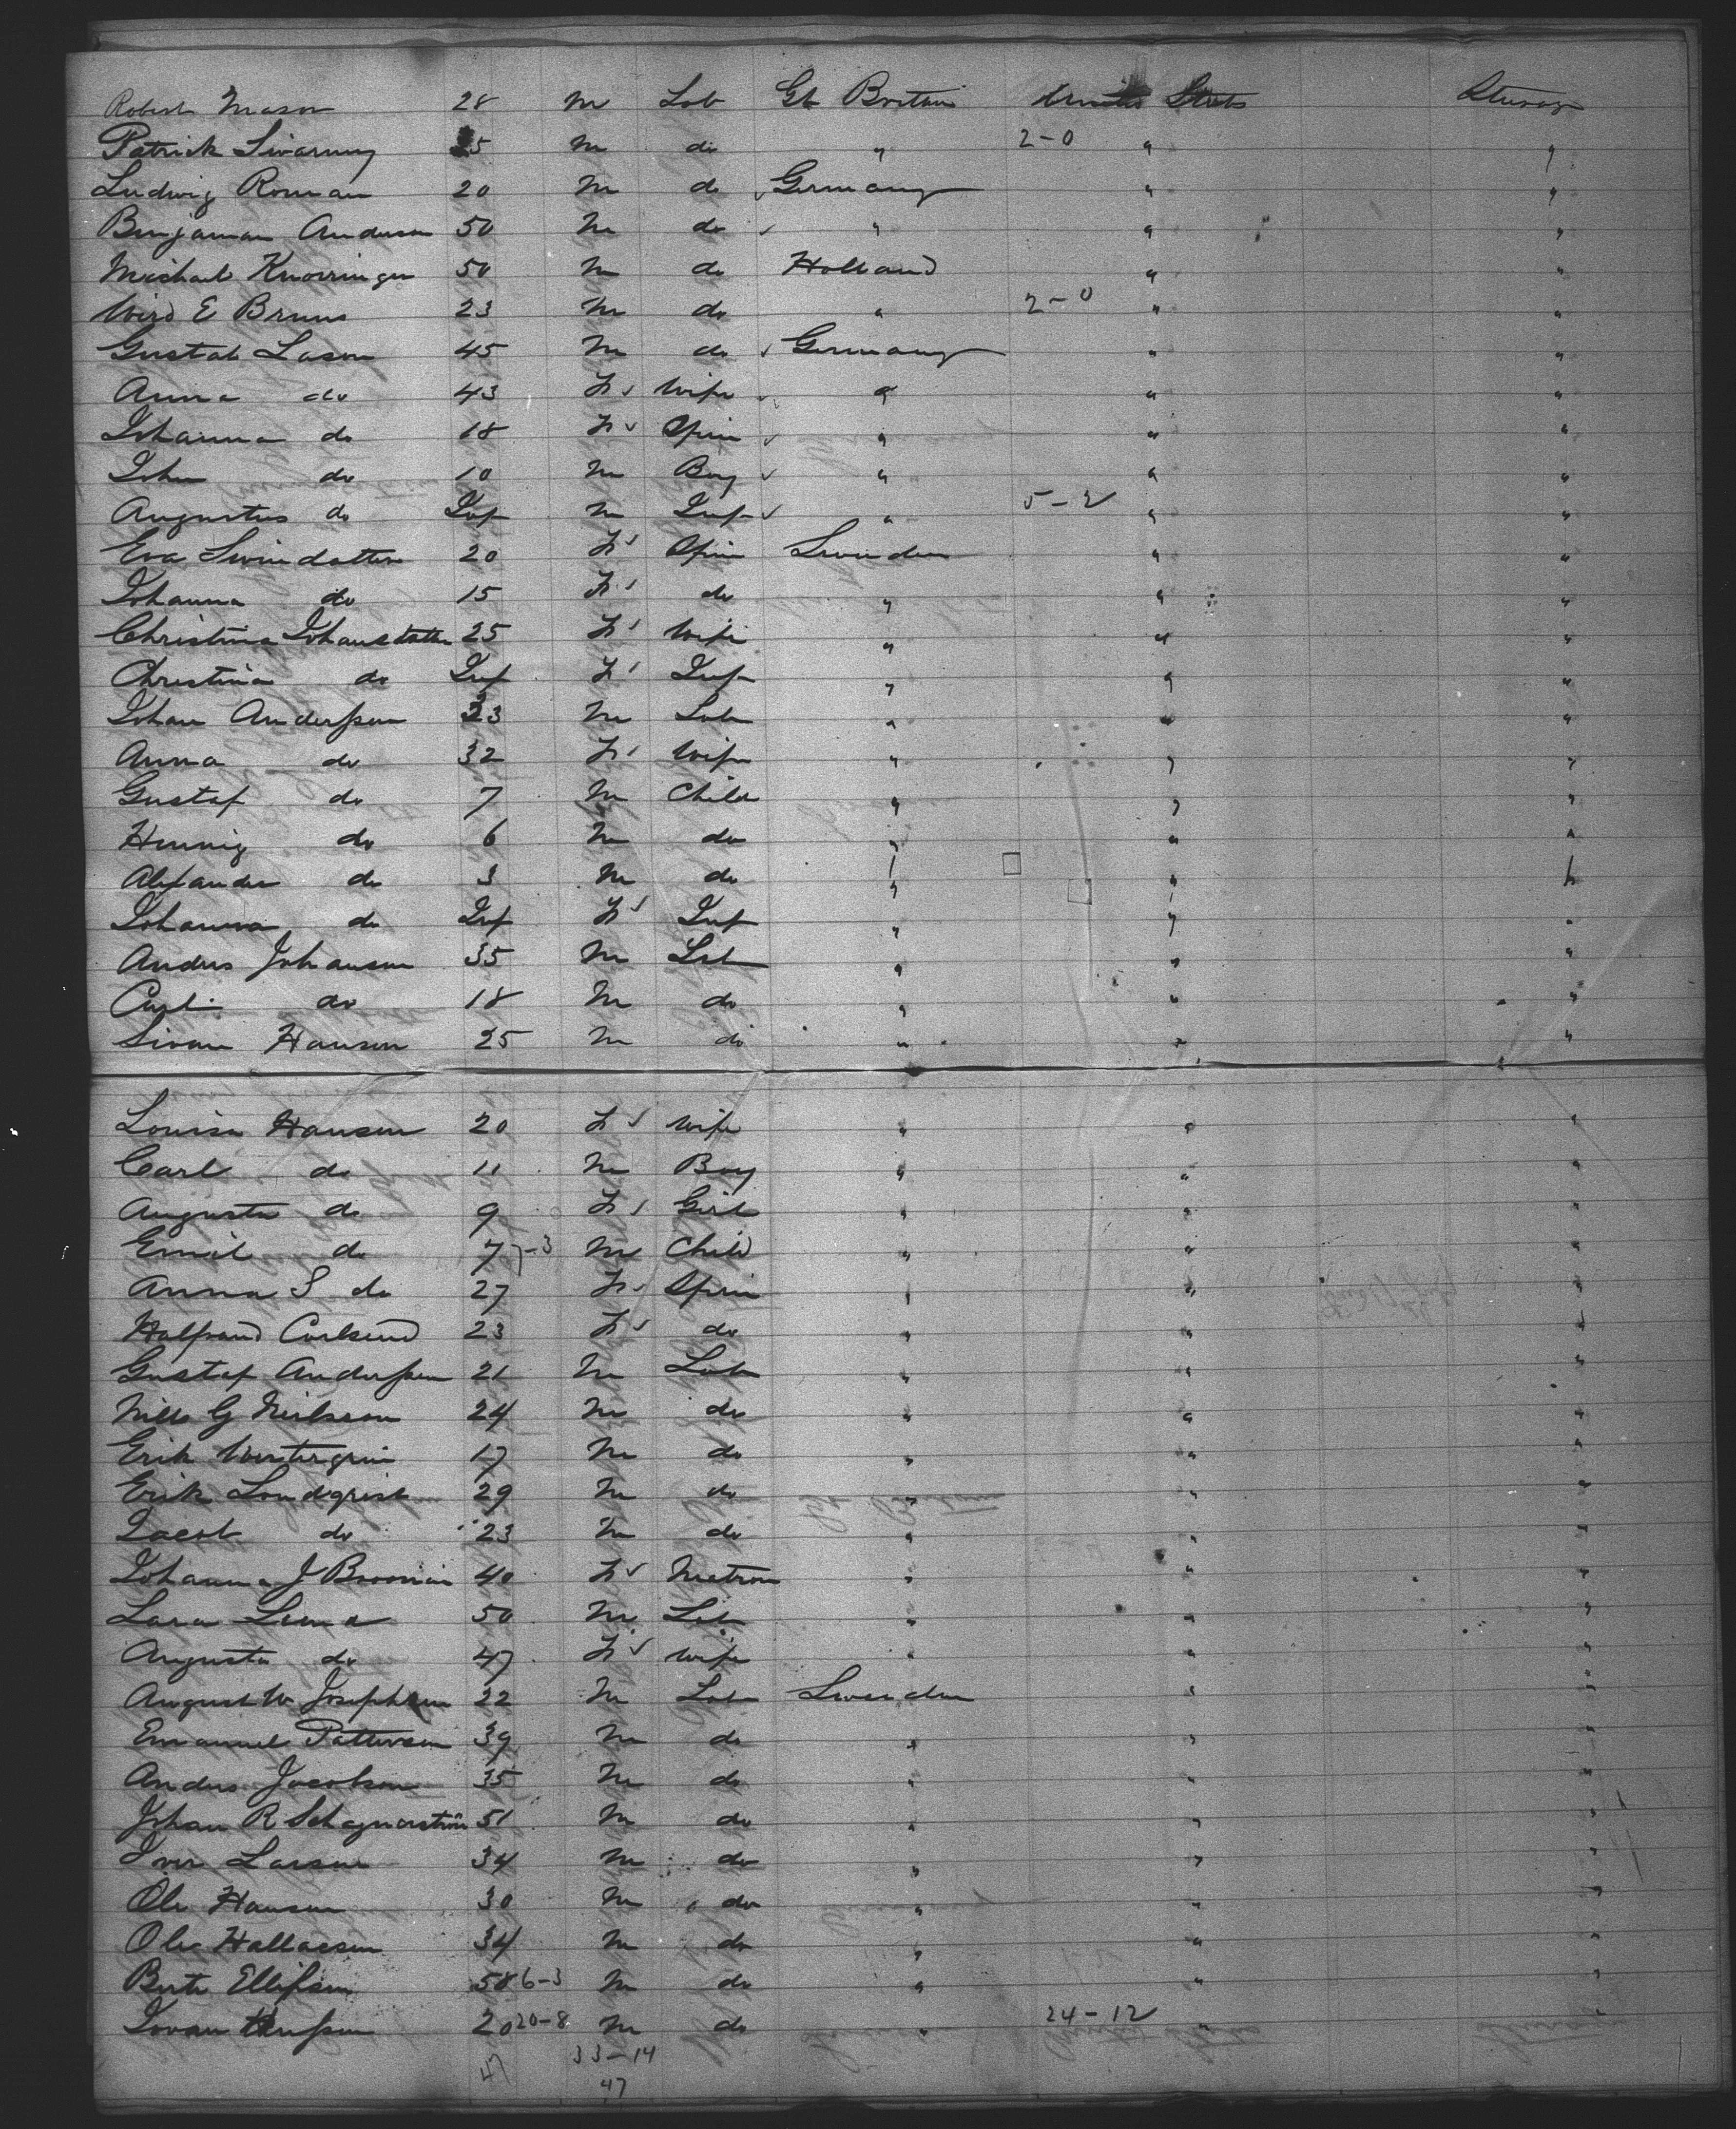 Robert Mason 28 M Lab Gt Britain United States Steerage
Patrick 25 M do " 2-0 " "
Ludwig Roman 20 M do Germany " "
Benjaman Anderson 50 M do " " "
Michael Knorringer 50 M do Holland " "
Wird E Bruns 23 M do " 2-0 " "
Gustab Lason 45 M do Germany " "
Anna do 43 F Wife " " "
Johanna do 18 F Spin " " "
John do 10 M Boy " " "
Augustus do Inf M Inf " 5-2 " "
Eva Swindotter 20 F Spin Sweden " "
Johanna do 15 F do " " "
Christina Johansdotter 25 F Wife " " "
Christina do Inf F Inf " " "
Johan Andersson 33 M Lab " " "
Anna do 32 F Wife " " "
Gustaf do 7 M Child " " "
Hennig do 6 M do " " "
Alexander do 3 M do " " "
Johanna do Inf F Inf " " "
Andres Johanson 35 M Lab " " "
Carl do 18 M do " " "
Sivan Hanson 25 M do " " "
Louisa Hansen 20 F Wife " " "
Carl do 11 M Boy " " "
Augusta do 9 F Girl " " "
Emil do 7 7-3 M Child " " "
Anna S do 27 F Spin " " "
Carlsend 23 F do " " "
Gustaf Andersson 21 M Lab " " "
Nills G Neilsson 24 M do " " "
Erik Westergrin 17 M do " " "
Erik Londqrist 29 M do " " "
Jacob do 23 M do " " "
Johanna J 40 F Matron " " "
Lars 50 M Lab " " "
Augusta do 47 F Wife " " "
August W Josephson 22 M Lab Sweden " "
Emanuel Patterson 39 M do " " "
Andres Jacobson 35 M do " " "
Johan R 51 M do " " "
Iver Larson 34 M do " " "
Ole Hansen 30 M do " " "
Ole Hallaesen 34 M do " " "
Ellifsen 58 6-3 M do " " "
20 20-8 M do " 24-12 " "
47 33-14
47